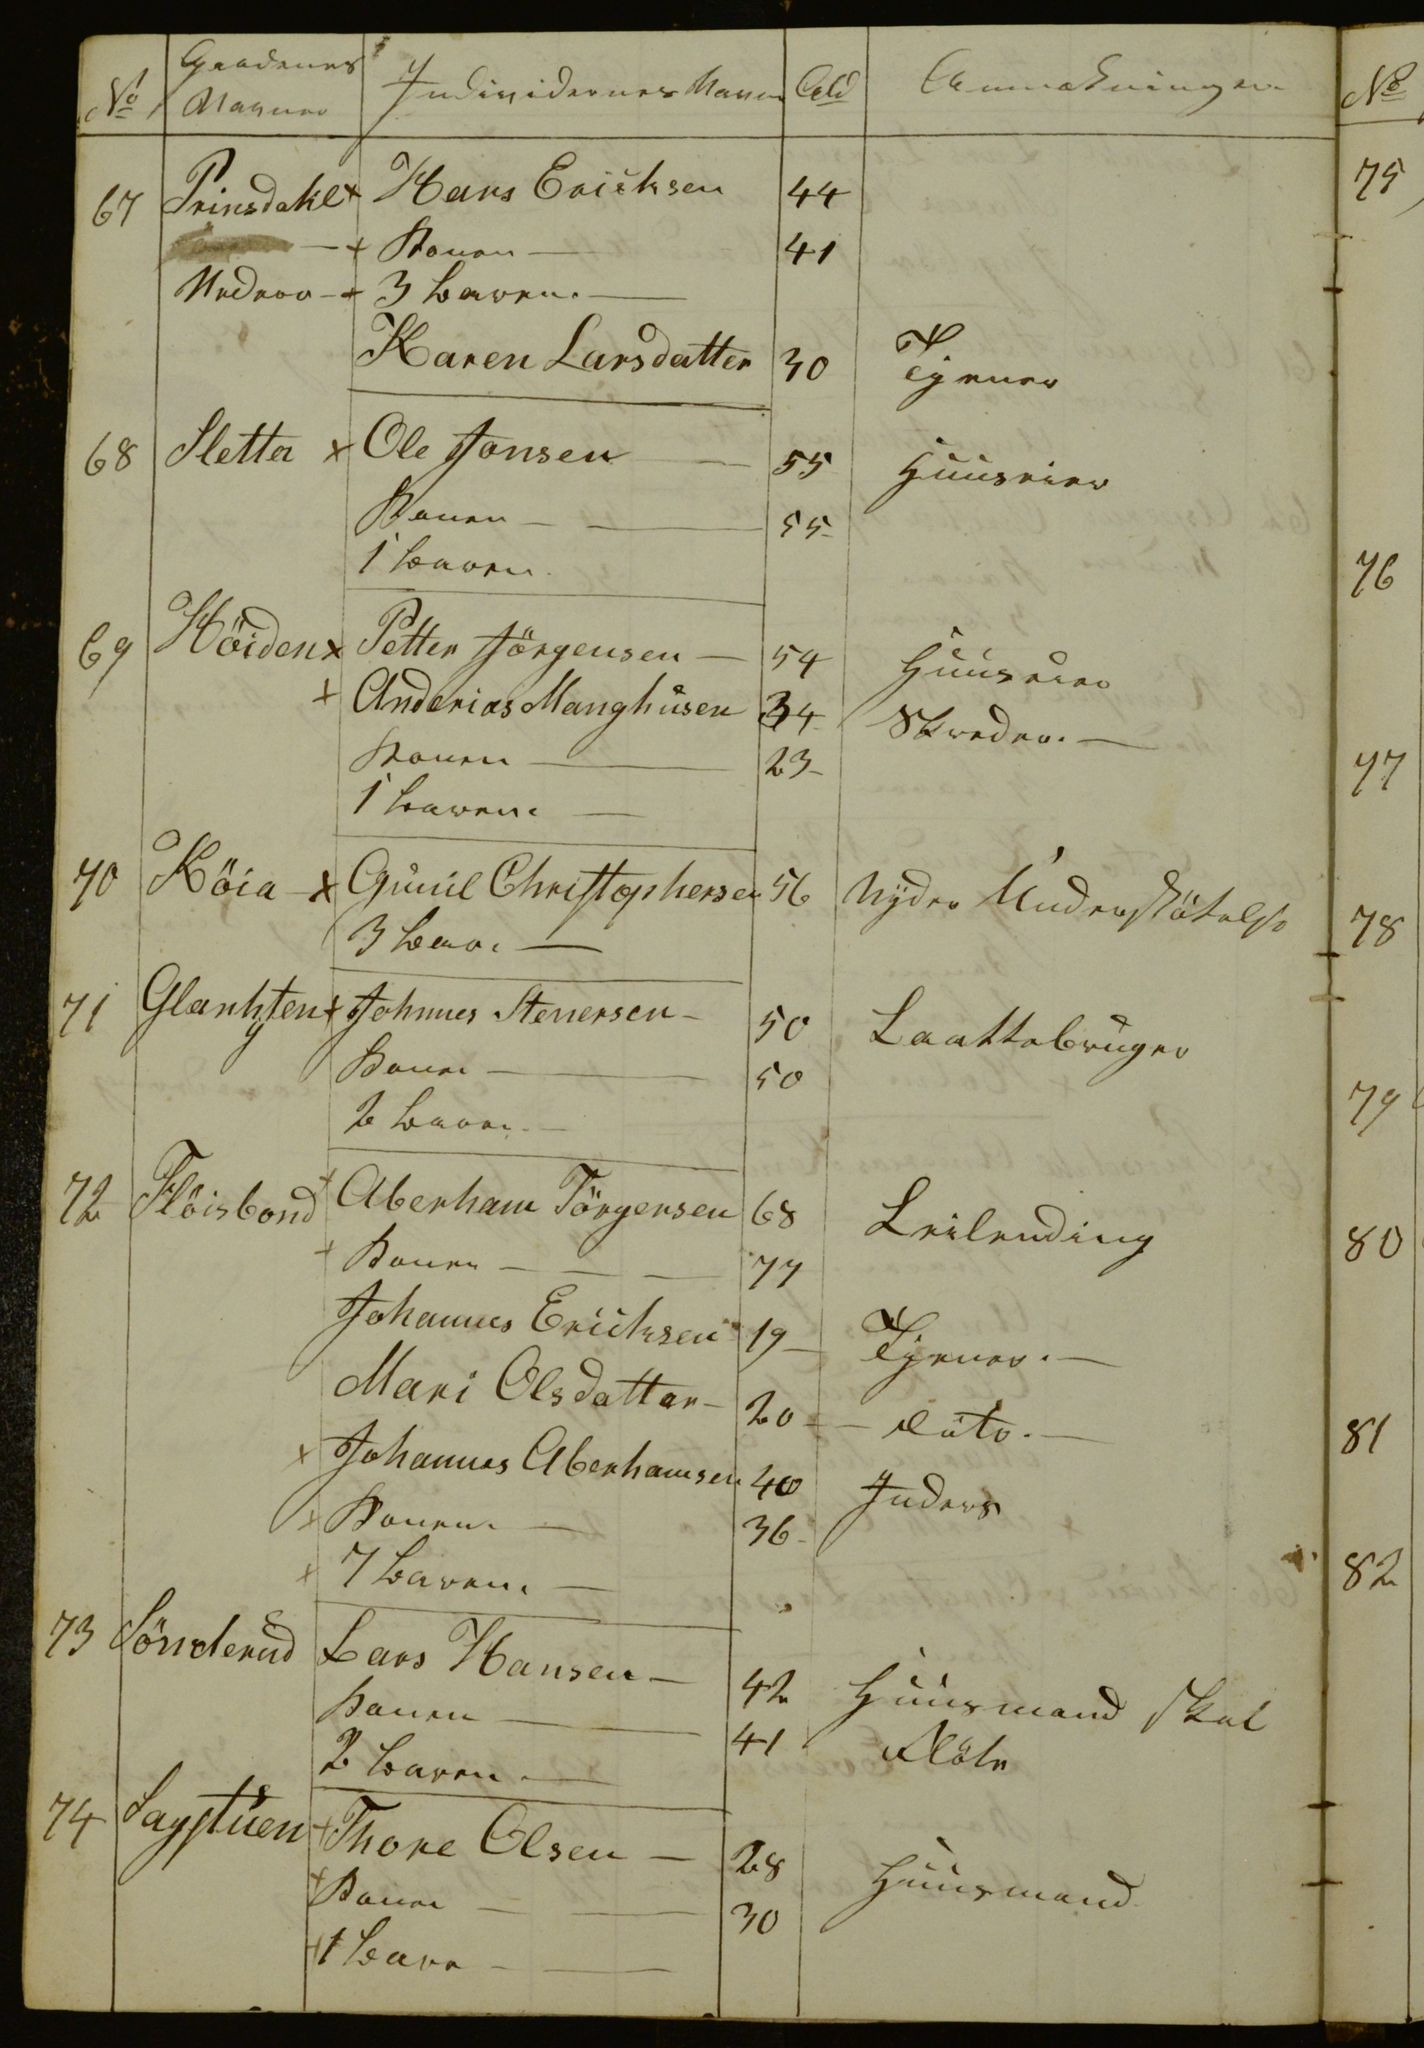 No Gaardenes Navner Individernes Navne Ald Anmærkninger No
67 Prinsdahl x Hans Ericksen 44 75
— x Konen — 41
Nedere — x 3 børn. —
Karen Larsdatter 30 Tjener
68 Sletta x Ole Jonsen — 55 Huuseier
Konen — — 55
1 barn 76
69 Höiden x Petter Jörgensen — 54 Huuseier
x Anderias Manghusen 34 Skreder. —
Konen — 23 77
1 barn. —
70 Köia — x Gunil Christophersen 56 Nyder Understøtelse 78
3 bar. —
71 Glanhsten x Johnnes Stenersen — 50 Laattebruger
Kone — 50 79
2 barn. —
72 Flöisbond x Aberham Törgersen 68 Leilending 80
x Konen — — — 77
Johannes Ericksen 19 — Tjener. —
Mari Olsdatter — 20 — — dito. — 81
x Johannes Aberhamsen 40 Inders
x Konen. — 36
x 7 barn. — 82
73 Sönderud Lars Hansen — 42 Huusmand skal
Konen — 41 fløte
2 barn. —
74 Sagstuen x Thore Olsen — 28 Huusmand
x Kone — — 30
x 1 barn — —